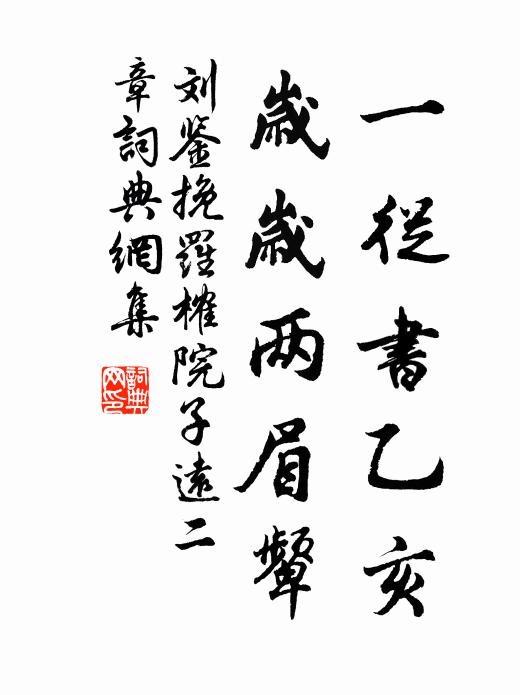 一從書乙亥
歲歲两眉顰
刘鉴挽羅榷院子遠二
章詞典網集
詞典网印